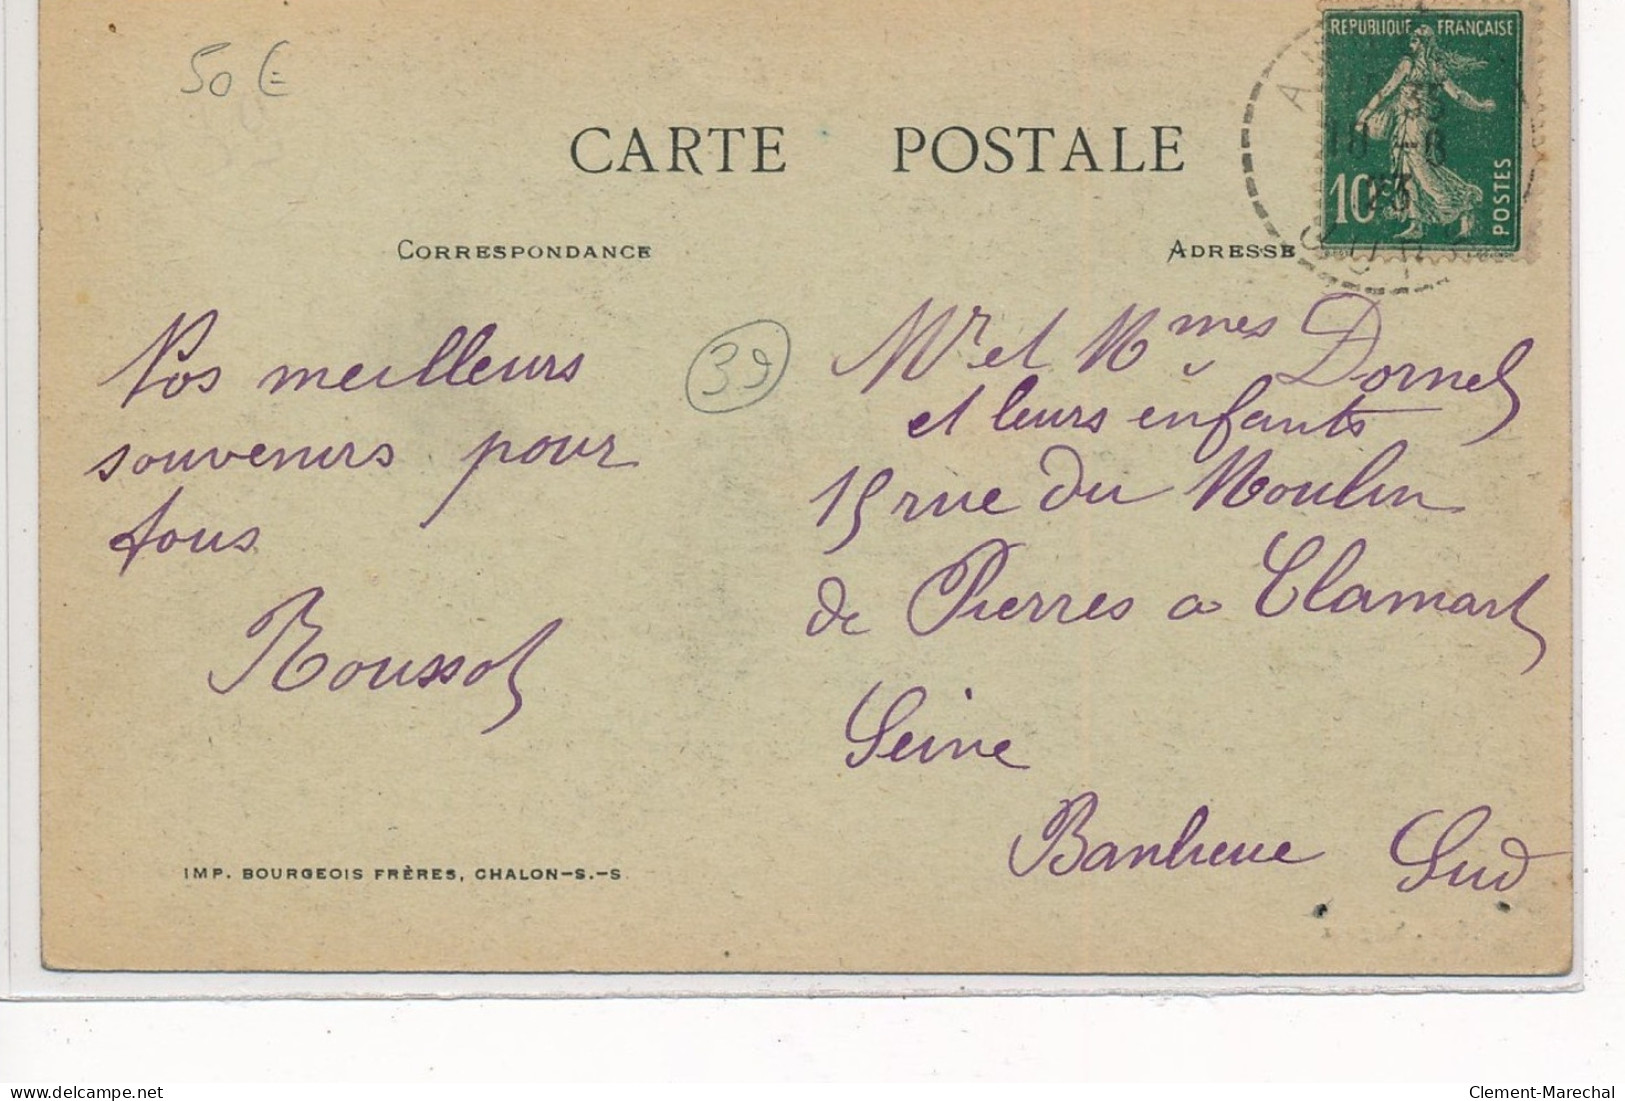 50 €
REPUBLIQUE FRANÇAISE
10 c
POSTES
18 - 8
23
CARTE POSTALE
CORRESPONDANCE
ADRESSE
Nos meilleurs
souvenirs pour
tous
Roussot
39
Mr et Mmes Dornet
et leurs enfants
15 rue du Moulin
de Pierres a Clamart
Seine
Banlieue Sud
IMP. BOURGEOIS FRÈRES, CHALON-S.-S
www.delcampe.net
Clement-Marechal